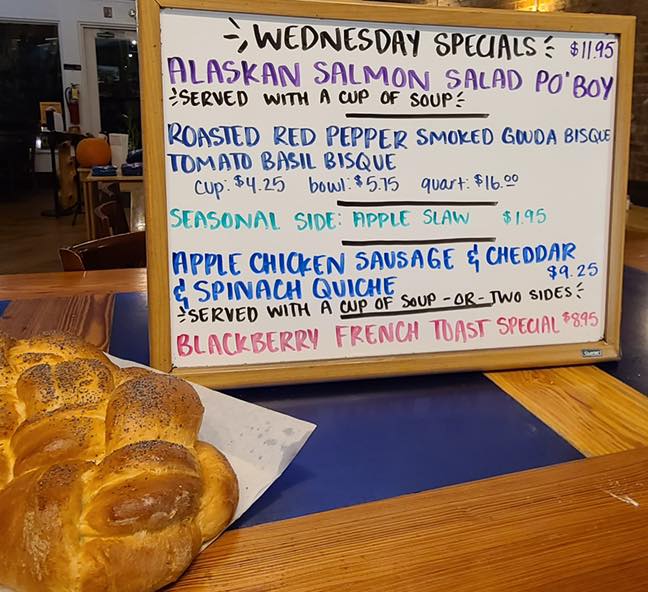 WEDNESDAY SPECIALS $11.95
ALASKAN SALMON SALAD PO'BOY
SERVED WITH A CUP OF SOUP
ROASTED RED PEPPER SMOKED GOUDA BISQUE
TOMATO BASIL BISQUE
cup: $4.25 bowl: $5.75 quart: $16.00
SEASONAL SIDE: APPLE SLAW $1.95
APPLE CHICKEN SAUSAGE & CHEDDAR
& SPINACH QUICHE $9.25
SERVED WITH A CUP OF SOUP -OR- TWO SIDES
BLACKBERRY FRENCH TOAST SPECIAL $8.95